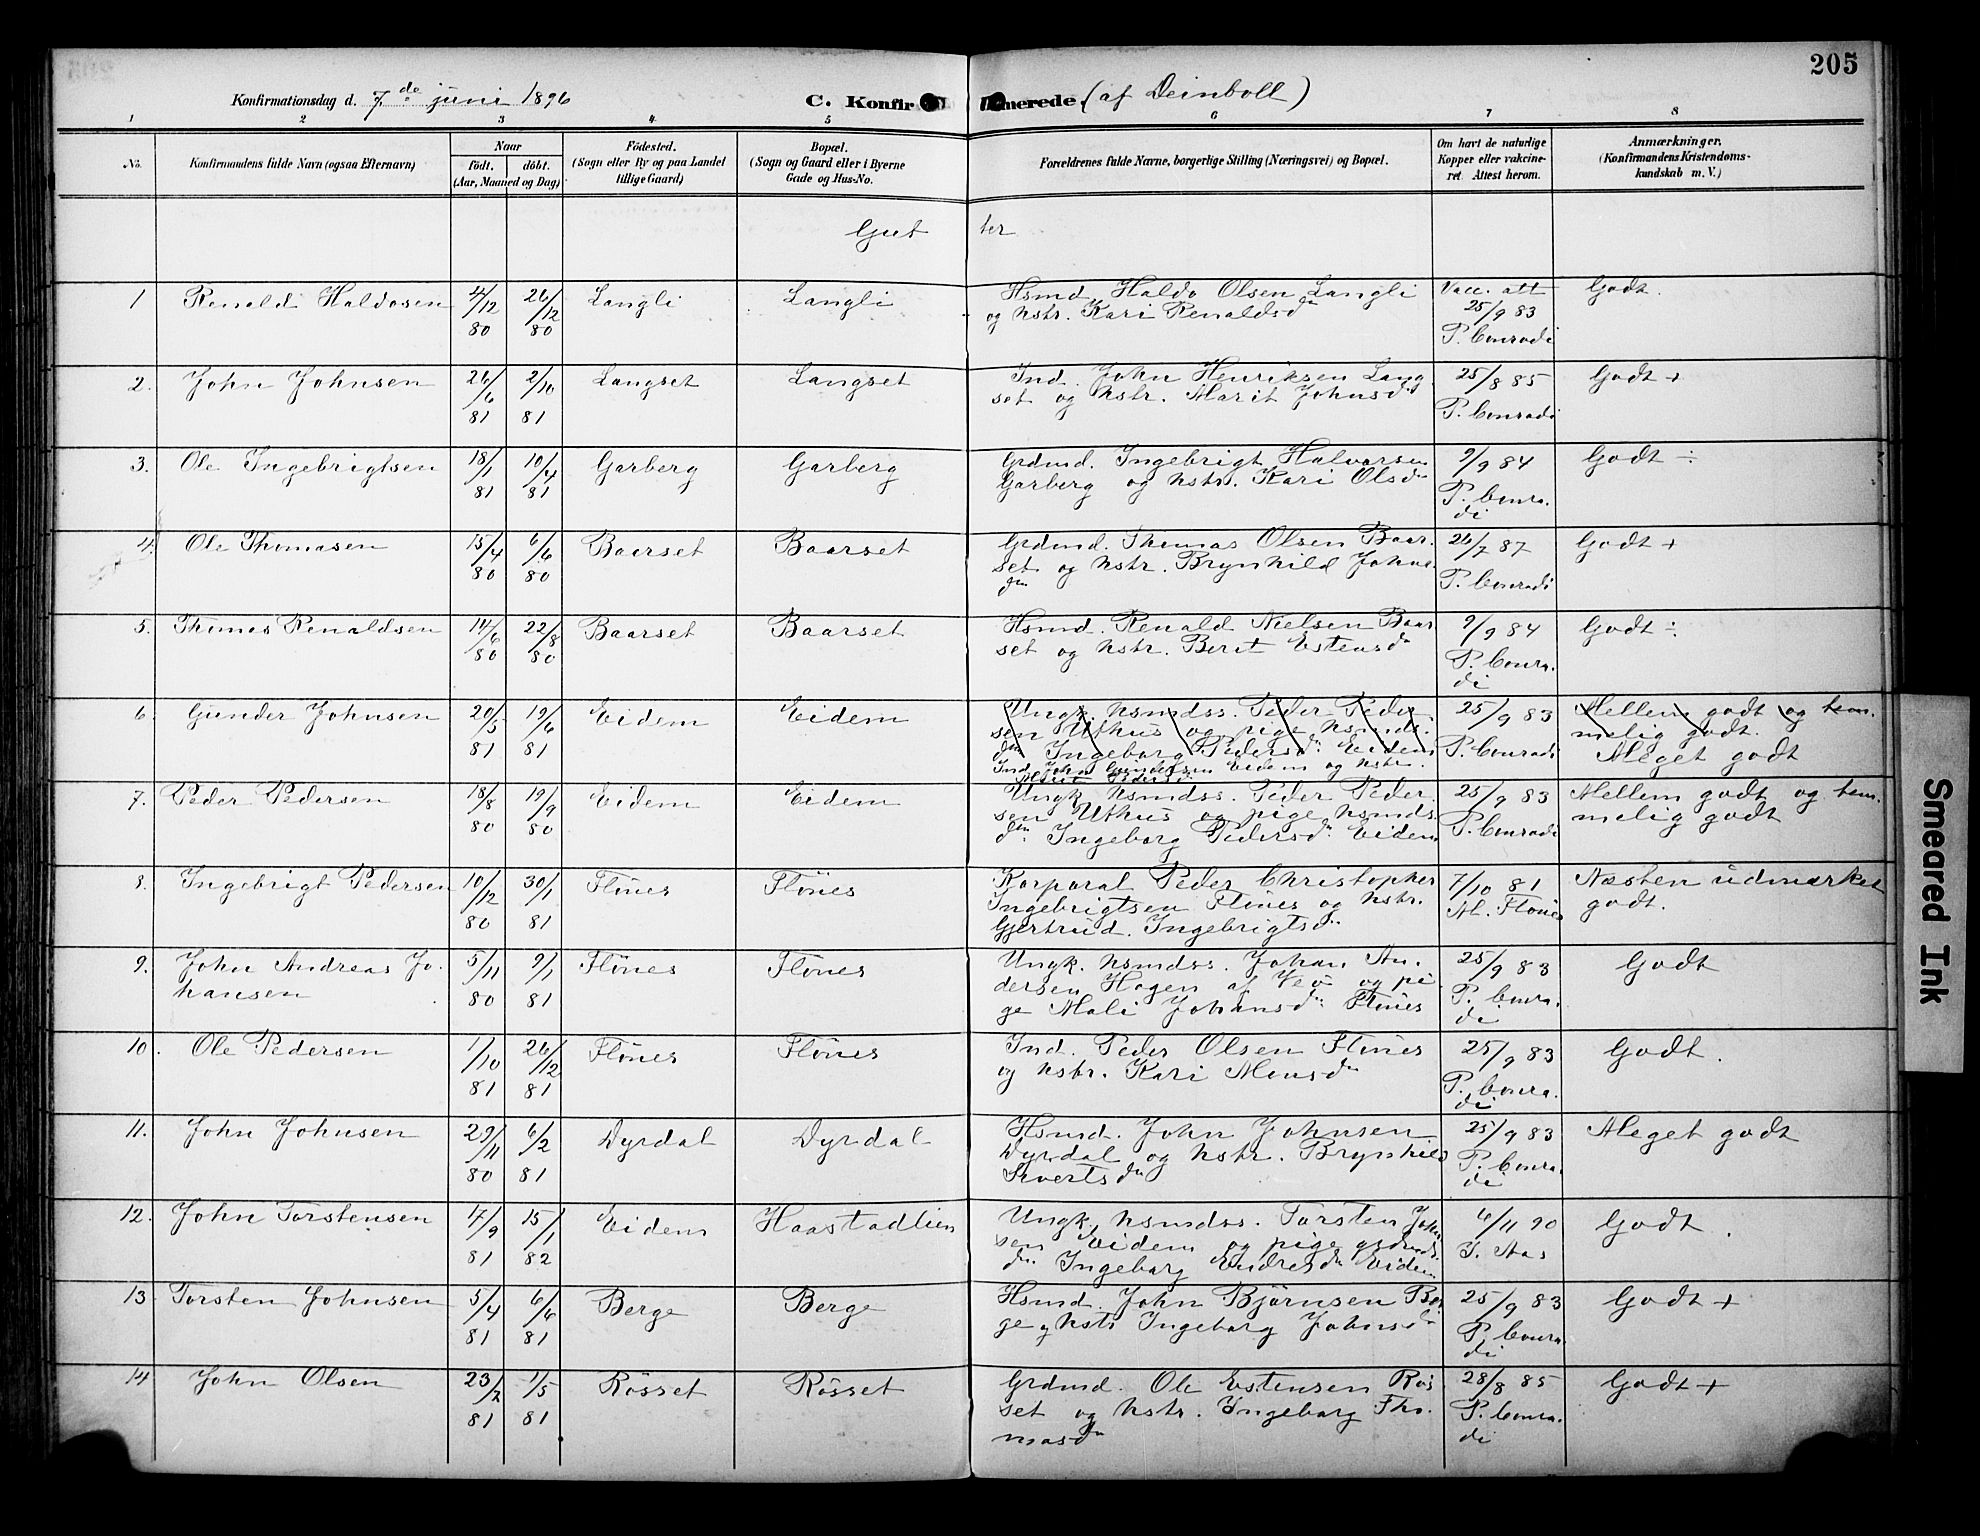 205
Konfirmationsdag d. 7de juni 1896 C. Konfirmerede. (af Deinboll)
1 2 3 4 5 6 7 8
No.
Konfirmandens fulde Navn (ogsaa Efternavn)
Naar
født. døbt.
(Aar, Maaned og Dag)
Fødested.
(Sogn eller By og paa Landet
tillige Gaard)
Bopæl.
(Sogn og Gaard eller i Byerne
Gade og Hus-No.
Forældrenes fulde Navne, borgerlige Stilling (Næringsvei) og Bopæl.
Om havt de naturlige
Kopper eller vakcine-
ret. Attest herom.
Anmærkninger.
(Konfirmandens Kristendoms-
kundskab m. V.)
Gutter
1 Renald Haldosen 4/12 80 26/12 80 Langli Langli
Hsmd. Haldo Olsen Langli
og hstr. Kari Renaldsdn
Vacc. att
25/9 83
P. Conradi
Godt.
2. John Johnsen 26/6 81 2/10 81 Langset Langset
Ind. John Henriksen Lang
set og hstr. Marit Johnsdn
25/8 85
P. Conradi
Godt +
3. Ole Ingebrigtsen 18/1 81 10/4 81 Garberg Garberg
Grdmd. Ingebrigt Halvorsen
Garberg og hstr. Kari Olsdn
9/9 84
P. Conra.
di
Godt ÷
4. Ole Thomasen 15/4 80 6/6 80 Baarset Baarset
Grdmd. Thomas Olsen Baar.
set og hstr. Brynhild Johns
dn
26/7 87
P. Conradi
Godt +
5. Thomas Renaldsen 14/6 80 22/8 80 Baarset Baarset
Hsmd. Renald Nielsen Baar
set og hstr. Berit Estensdn
9/9 84
P. Conra.
di
Godt ÷
6. Gunder Johnsen 20/5 81 19/6 81 Eidem Eidem
Ungk. hsmdss. Peder Peder
sen Uthus og pige hsmds.
dn Ingeborg Pedersdn Eidem
Ind. John Gundersen Eidem og hstr.
Marit Pedersdn
25/9 83
P. Conradi
Mellem godt og tem.
melig godt.
Meget godt
7. Peder Pedersen 18/8 80 19/9 80 Eidem Eidem
Ungk. hsmdss. Peder Peder.
sen Uthus og pige hsmds.
dn. Ingeborg Pedersdn Eidem
25/9 83
P. Conradi
Mellem godt og tem.
melig godt
8. Ingebrigt Pedersen 10/12 80 30/1 81 Flönes Flönes
Korporal Peder Christopher
Ingebrigtsen Flönes og hstr.
Gjertrud. Ingebrigtsdn
7/10 81
M. Flönes
Næsten udmærket
godt.
9. John Andreas Jo.
hansen 5/11 80 9/1 81 Flönes Flönes
Ungk. hsmdss. Johan An.
dersen Hagen af Veö og pi
ge Mali Johansdn Flönes
25/9 83
P. Conra.
di
Godt
10. Ole Pedersen 1/10 81 26/12 81 Flönes Flönes
Ind. Peder Olsen Flönes
og hstr. Kari Monsdn
25/9 83
P. Conra.
di
Godt.
11. John Johnsen 29/11 80 6/2 81 Dyrdal Dyrdal
Hsmd. John Johnsen
Dyrdal og hstr. Brynhild
Sivertsdn
25/9 83
P. Conra.
di
Meget godt
12. John Torstensen 17/9 81 15/1 82 Eidem Haastadlien
Ungk. hsmdss. Torsten John
sen Eidem og pige grdmds.
dn. Ingeborg Endresdn Eidem
6/11 90
J. Aas
Godt.
13. Torsten Johnsen 5/4 81 6/6 81 Berge Berge
Hsmd. John Björnsen Ber
ge og hstr Ingeborg Johnsdn
25/9 83
P. Conra.
di
Godt +
14 John Olsen 23/2 81 1/5 81 Rösset Rösset
Grdmd. Ole Estensen Rös
set og hstr. Ingeborg Tho.
masdn
28/8 85
P. Conra.
di
Godt +
Smeared Ink